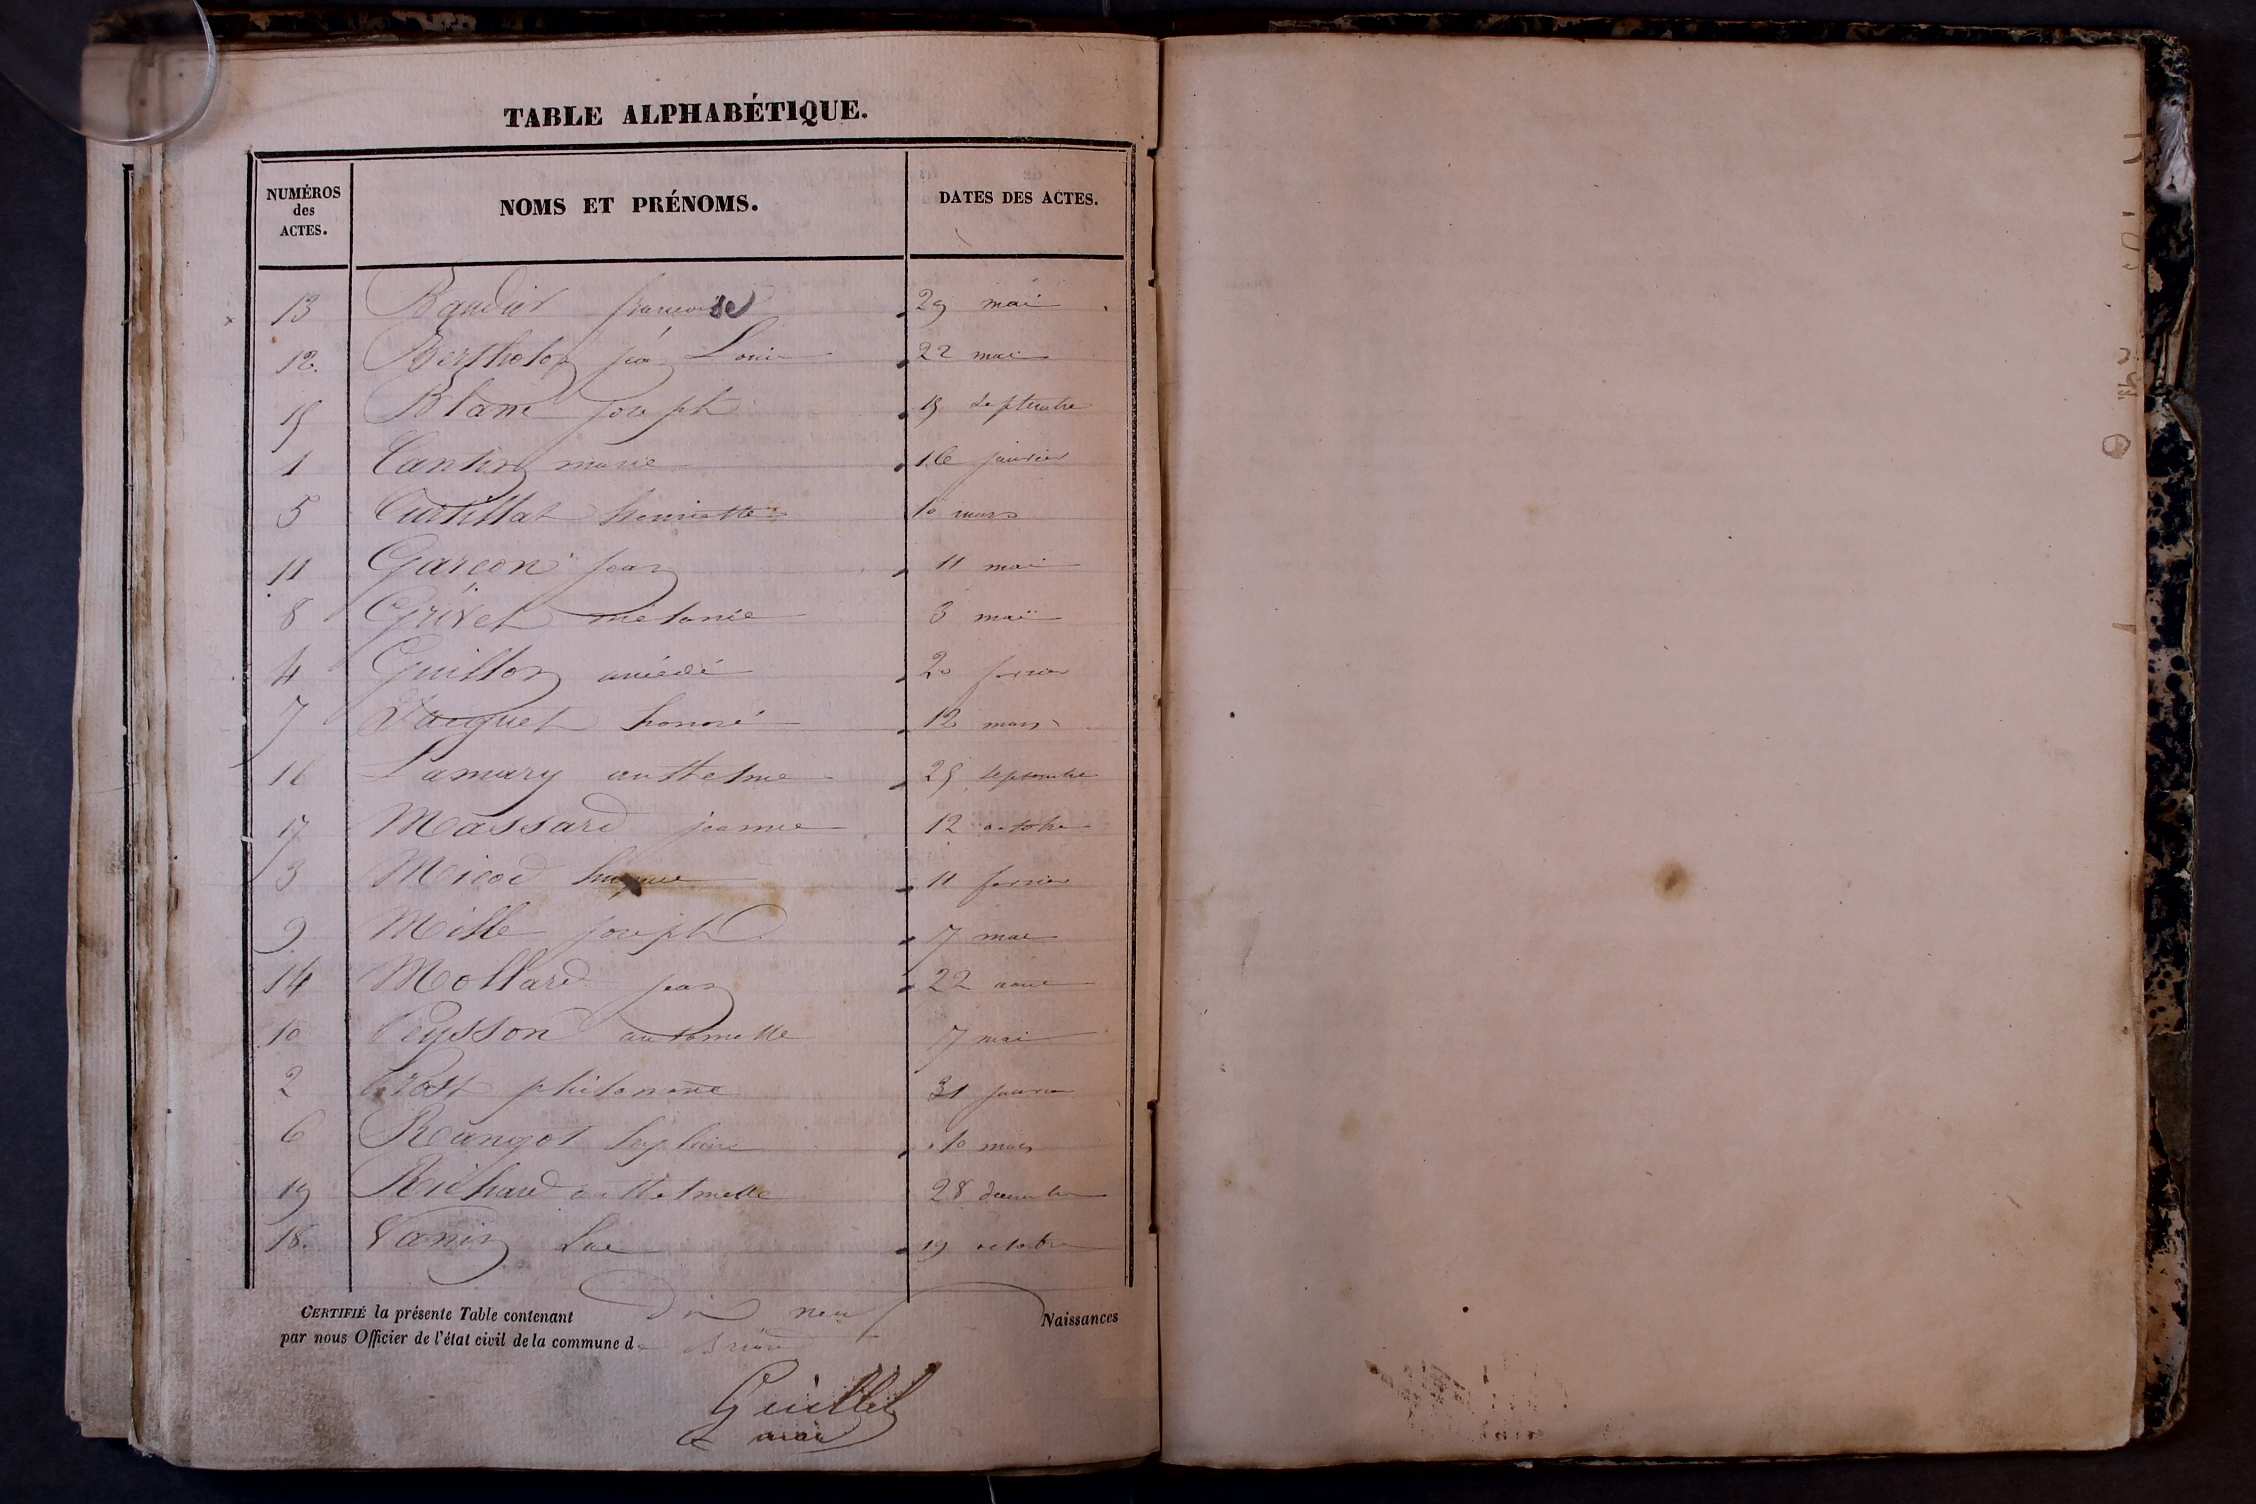 TABLE ALPHABÉTIQUE.
NUMÉROS des ACTES. NOMS ET PRÉNOMS. DATES DES ACTES.
13 Baudin francoise 29 mai
12. Bertholon Louis 22 mai
15 Blanc joseph 15 septembre
1 Cantin marie 16 janvier
5 Curtillat henriette 10 mars
11 Garçon jean 11 mai
8 Grivet mélanie 3 mai
4 Guillon amédé 20 fevrier
7 Jacquet honoré 12 mars
16 Lamury anthelme 25 septembre
17 Massard jeanne 12 octobre
3 Micod 11 fevrier
9 Mille joseph 7 mai
14 Mollard jean 22 aout
10 Peysson antoinette 7 mai
2 Prost philomene 31 janvier
6 Rangot 10 mars
19 Richard anthelmette 28 decembre
18. Vanin Luc 19 octobre
CERTIFIÉ la présente Table contenant Dix neuf Naissances
par nous Officier de l'état civil de la commune de
Guillet
maire